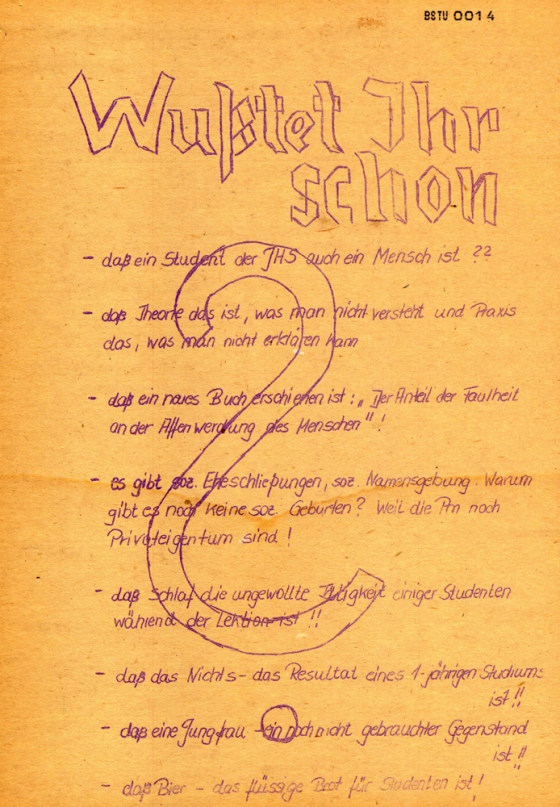 BSTU 0014
Wußtet Ihr
schon
- daß ein Student der JHS auch ein Mensch ist ??
- daß Theorie das ist, was man nicht versteht und Praxis
das, was man nicht erklären kann
- daß ein neues Buch erschienen ist: „Der Anteil der Faulheit
an der Affenwerdung des Menschen"!
- es gibt soz. Eheschließungen, soz. Namensgebung. Warum
gibt es noch keine soz. Geburten? Weil die Pm noch
Privateigentum sind!
- daß Schlaf die ungewollte Tätigkeit einiger Studenten
während der Lektion ist !!
- daß das Nichts - das Resultat eines 1-jährigen Studiums
ist !!
- daß eine Jungfrau - ein noch nicht gebrauchter Gegenstand
ist !!
- daß Bier - das flüssige Brot für Studenten ist!